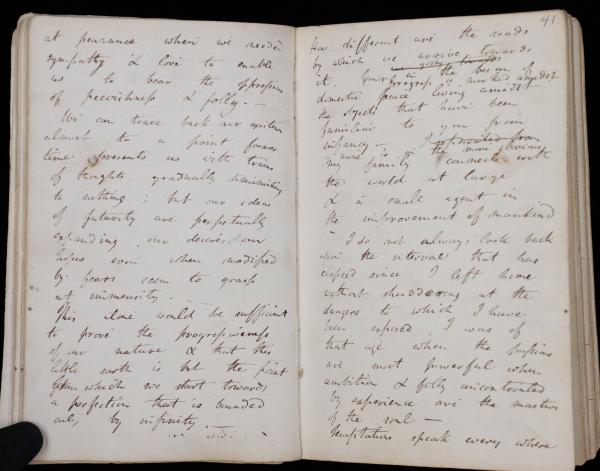 at pennance when we needed
sympathy & love to enable
us to bear the oppression
of peevishness & folly. —
We can trace back our existence
almost to a point former
time presents us with trains
of thoughts gradually diminishing
to nothing; but our ideas
of futurity are perpetually
expanding our desires & our
hopes even when modified
by fears seem to grasp
at immensity. —
This alone would be sufficient
to prove the progressiveness
of our nature & that this
little earth is but the point
from which we start towards
a perfection that is bounded
only by infinity.
41
how different are the roads
by which we arrive towards
it. Your progress is in the bosom of
domestic peace living amidst
the objects that have been
familiar to you from
infancy — I
my family more connected with
the world at large
& a small agent in
the improvement of mankind
I do not always look back
upon the interval that has
elapsed since I left home
without shuddering at the
dangers to which I have
been exposed I was of
that age when the passions
are most powerful when
ambition & folly uncontrouled
by experience are the masters
of the soul —
Temptations speak every where